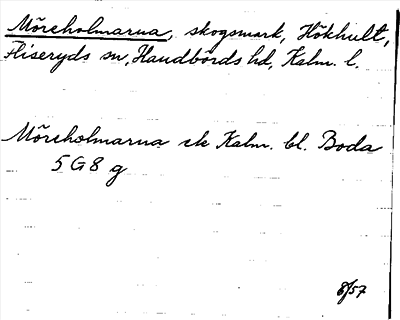 Möreholmarna, skogsmark, Hökhult,
Fliseryds sn, Handbörds hd, Kalm. l.
Möreholmarna ek Kalm. bl. Boda
5 G 8 g
8/57